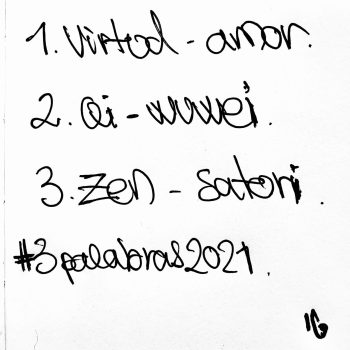 1. Virtud - amor.
2. Qi - wuwei.
3. Zen - satori.
#3palabras2021.
IG